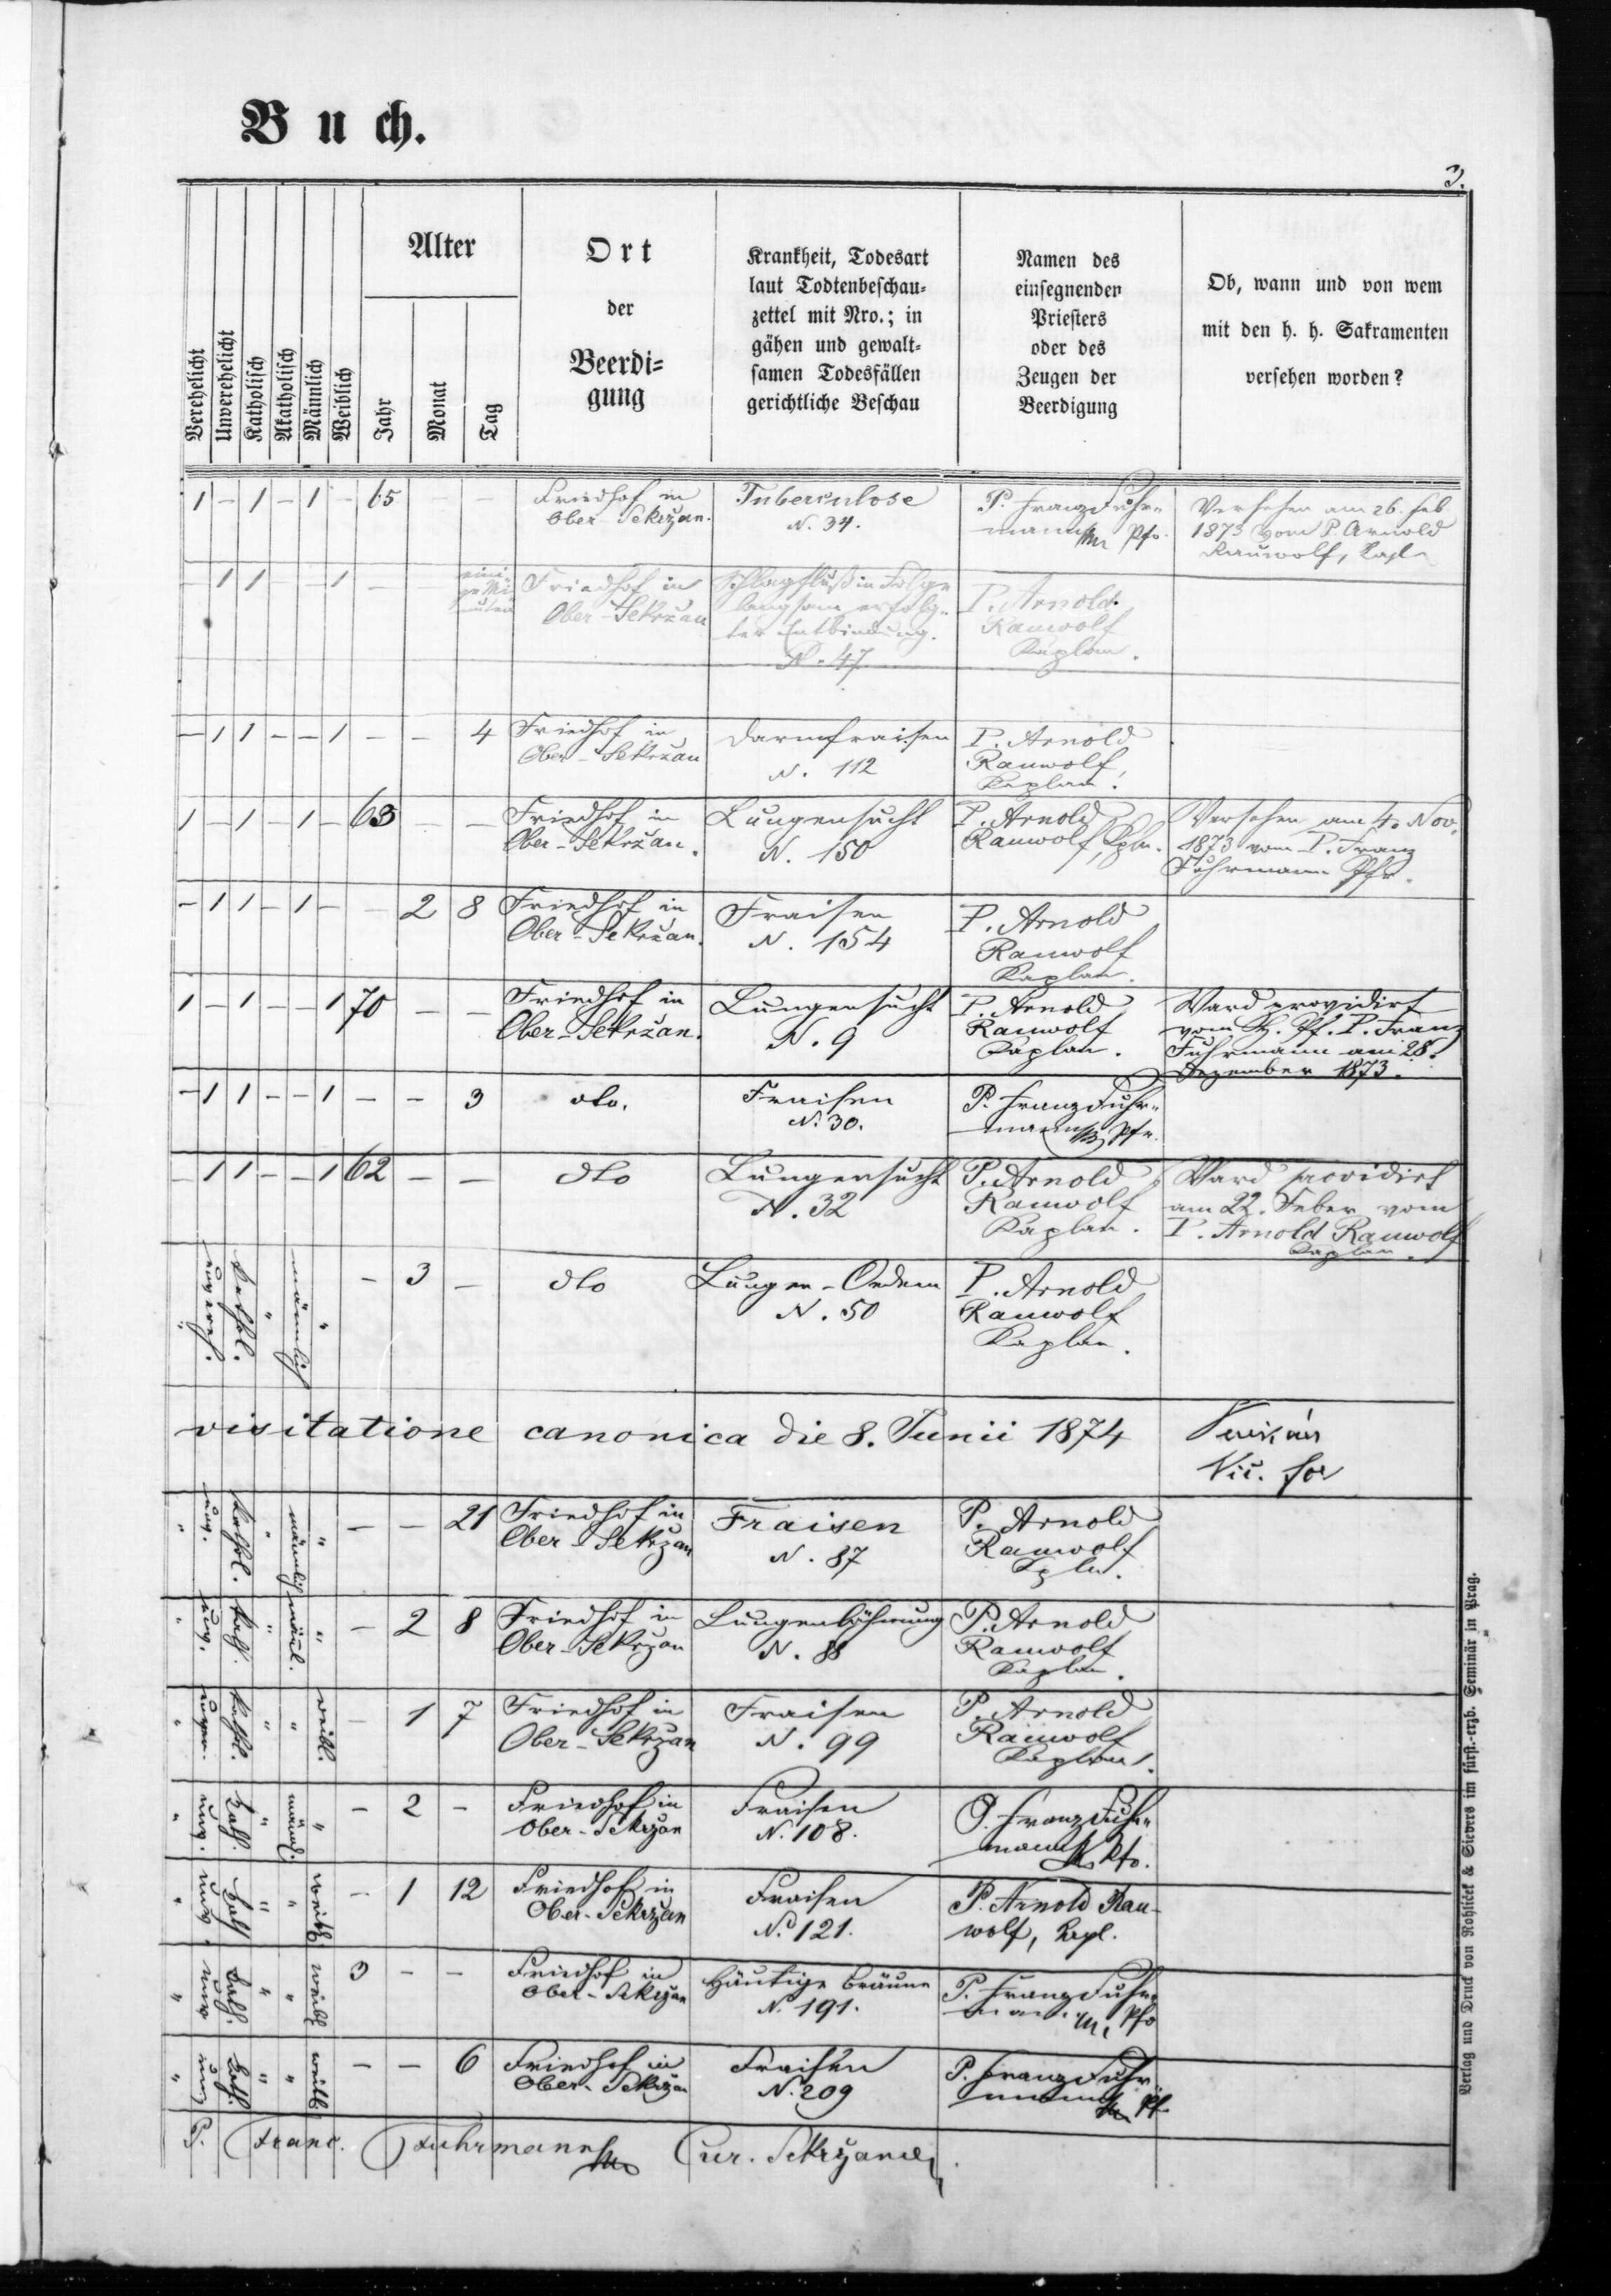 Buch.
3.
Verehelicht
Unverehelicht
Katholisch
Akatholisch
Männlich
Weiblich
Alter
Jahr
Monat
Tag
Ort
der
Beerdi=
gung
Krankheit, Todesart
laut Todtenbeschau=
zettel mit Nro.; in
gähen und gewalt=
samen Todesfällen
gerichtliche Beschau
Namen des
einsegnenden
Priesters
oder des
Zeugen der
Beerdigung
Ob, wann und von wem
mit den h. h. Sakramenten
versehen worden?
1 – 1 – 1 – 65 – –
Friedhof in
Ober-Sekržan.
Tuberculose
N. 34.
P. Franz Fuhr=
mann Pfr.
Versehen am 26. Feb
1873 vom P. Arnold
Rauwolf, Kapl
– 1 1 – 1 – –
eini=
ge Mi
nuten
Friedhof in
Ober-Sekržan
Schlagfluß in Folge
langsam erfolg=
ter Entbindung.
N. 47
P. Arnold
Rauwolf
Kaplan.
– 1 1 – – 1 – – 4
Friedhof in
Ober-Sekržan
Darmfraisen
N. 112
P. Arnold
Rauwolf,
Kaplan.
1 – 1 – 1 – 63 – –
Friedhof in
Ober-Sekržan.
Lungensucht
N. 150
P. Arnold
Rauwolf, Kpln.
Versehen am 4. Nov.
1873 vom P. Franz
Fuhrmann Pfr.
– 1 1 – 1 – – 2 8
Friedhof in
Ober-Sekržan.
Fraisen
N. 154
P. Arnold
Rauwolf
Kaplan.
1 – 1 – – 1 70 – –
Friedhof in
Ober-Sekržan.
Lungensucht
N. 9
P. Arnold
Rauwolf
Kaplan.
Ward providirt
vom H. Pf. P. Franz
Fuhrmann am 28.
Dezember 1873.
– 1 1 – – 1 – – 3
dto.
Fraisen
N. 30.
P. Franz Fuhr=
mann Pfr.
– 1 1 – – 1 62 – –
dto
Lungensucht
N. 32
P. Arnold
Rauwolf
Kaplan.
Ward providirt
am 22. Feber vom
P. Arnold Rauwolf
Kaplan.
" unvereh. kathol. " männlich " – 3 –
dto
Lungen-Oedem
N. 50
P. Arnold
Rauwolf
Kaplan.
visitatione canonica die 8. Junii 1874
Vic. for
" unv. kathol. " männlich " – – 21
Friedhof in
Ober-Sekržan
Fraisen
N. 87
P. Arnold
Rauwolf
Kpln.
" unv. kath. " männl. " – 2 8
Friedhof in
Ober-Sekržan
Lungenlähmung
N. 88
P. Arnold
Rauwolf
Kaplan.
" unver. kathl. " " weibl. – 1 7
Friedhof in
Ober-Sekržan
Fraisen
N. 99
P. Arnold
Rauwolf
Kaplan.
" unv. kath. " männl. " – 2 –
Friedhof in
Ober-Sekržan
Fraisen
N. 108.
P. Franz Fuhr=
mann Pfr.
" unv. kath. " " weibl – 1 12
Friedhof in
Ober-Sekržan
Fraisen
No. 121.
P. Arnold Rau-
wolf, Kapl.
" unv kath. " " weibl 3 – –
Friedhof in
Ober-Sekržan
Häutige Bräune
N. 191.
P. Franz Fuhr=
mann Pfr
" unv kath. " " weibl – – 6
Friedhof in
Ober-Sekržan
Fraisen
N. 209
P. Franz Fuhr
mann Pf
P. Franc. Fuhrmann Cur. Sekržanen
Verlag und Druck von Rohliček & Sievers im fürst.-erzb. Seminär in Prag.